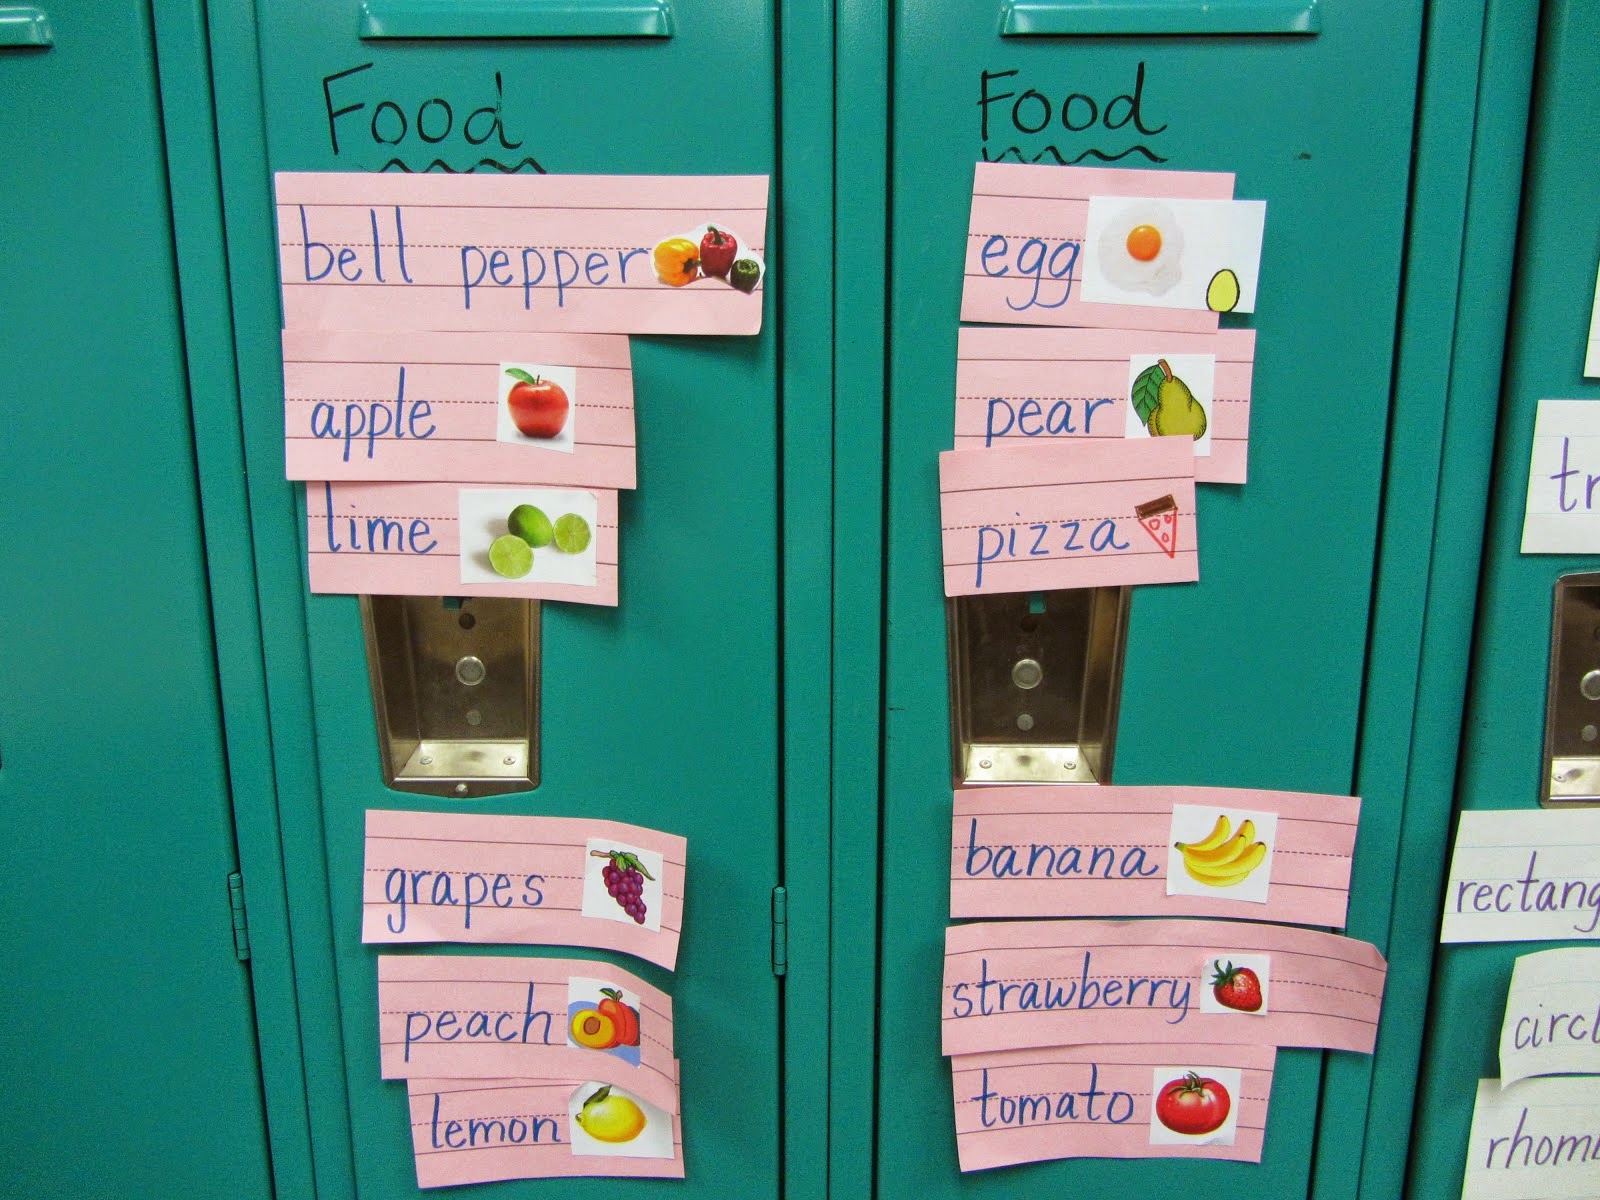 Food
bell pepper
apple
lime
grapes
peach
lemon
Food
egg
pear
pizza
banana
strawberry
tomato